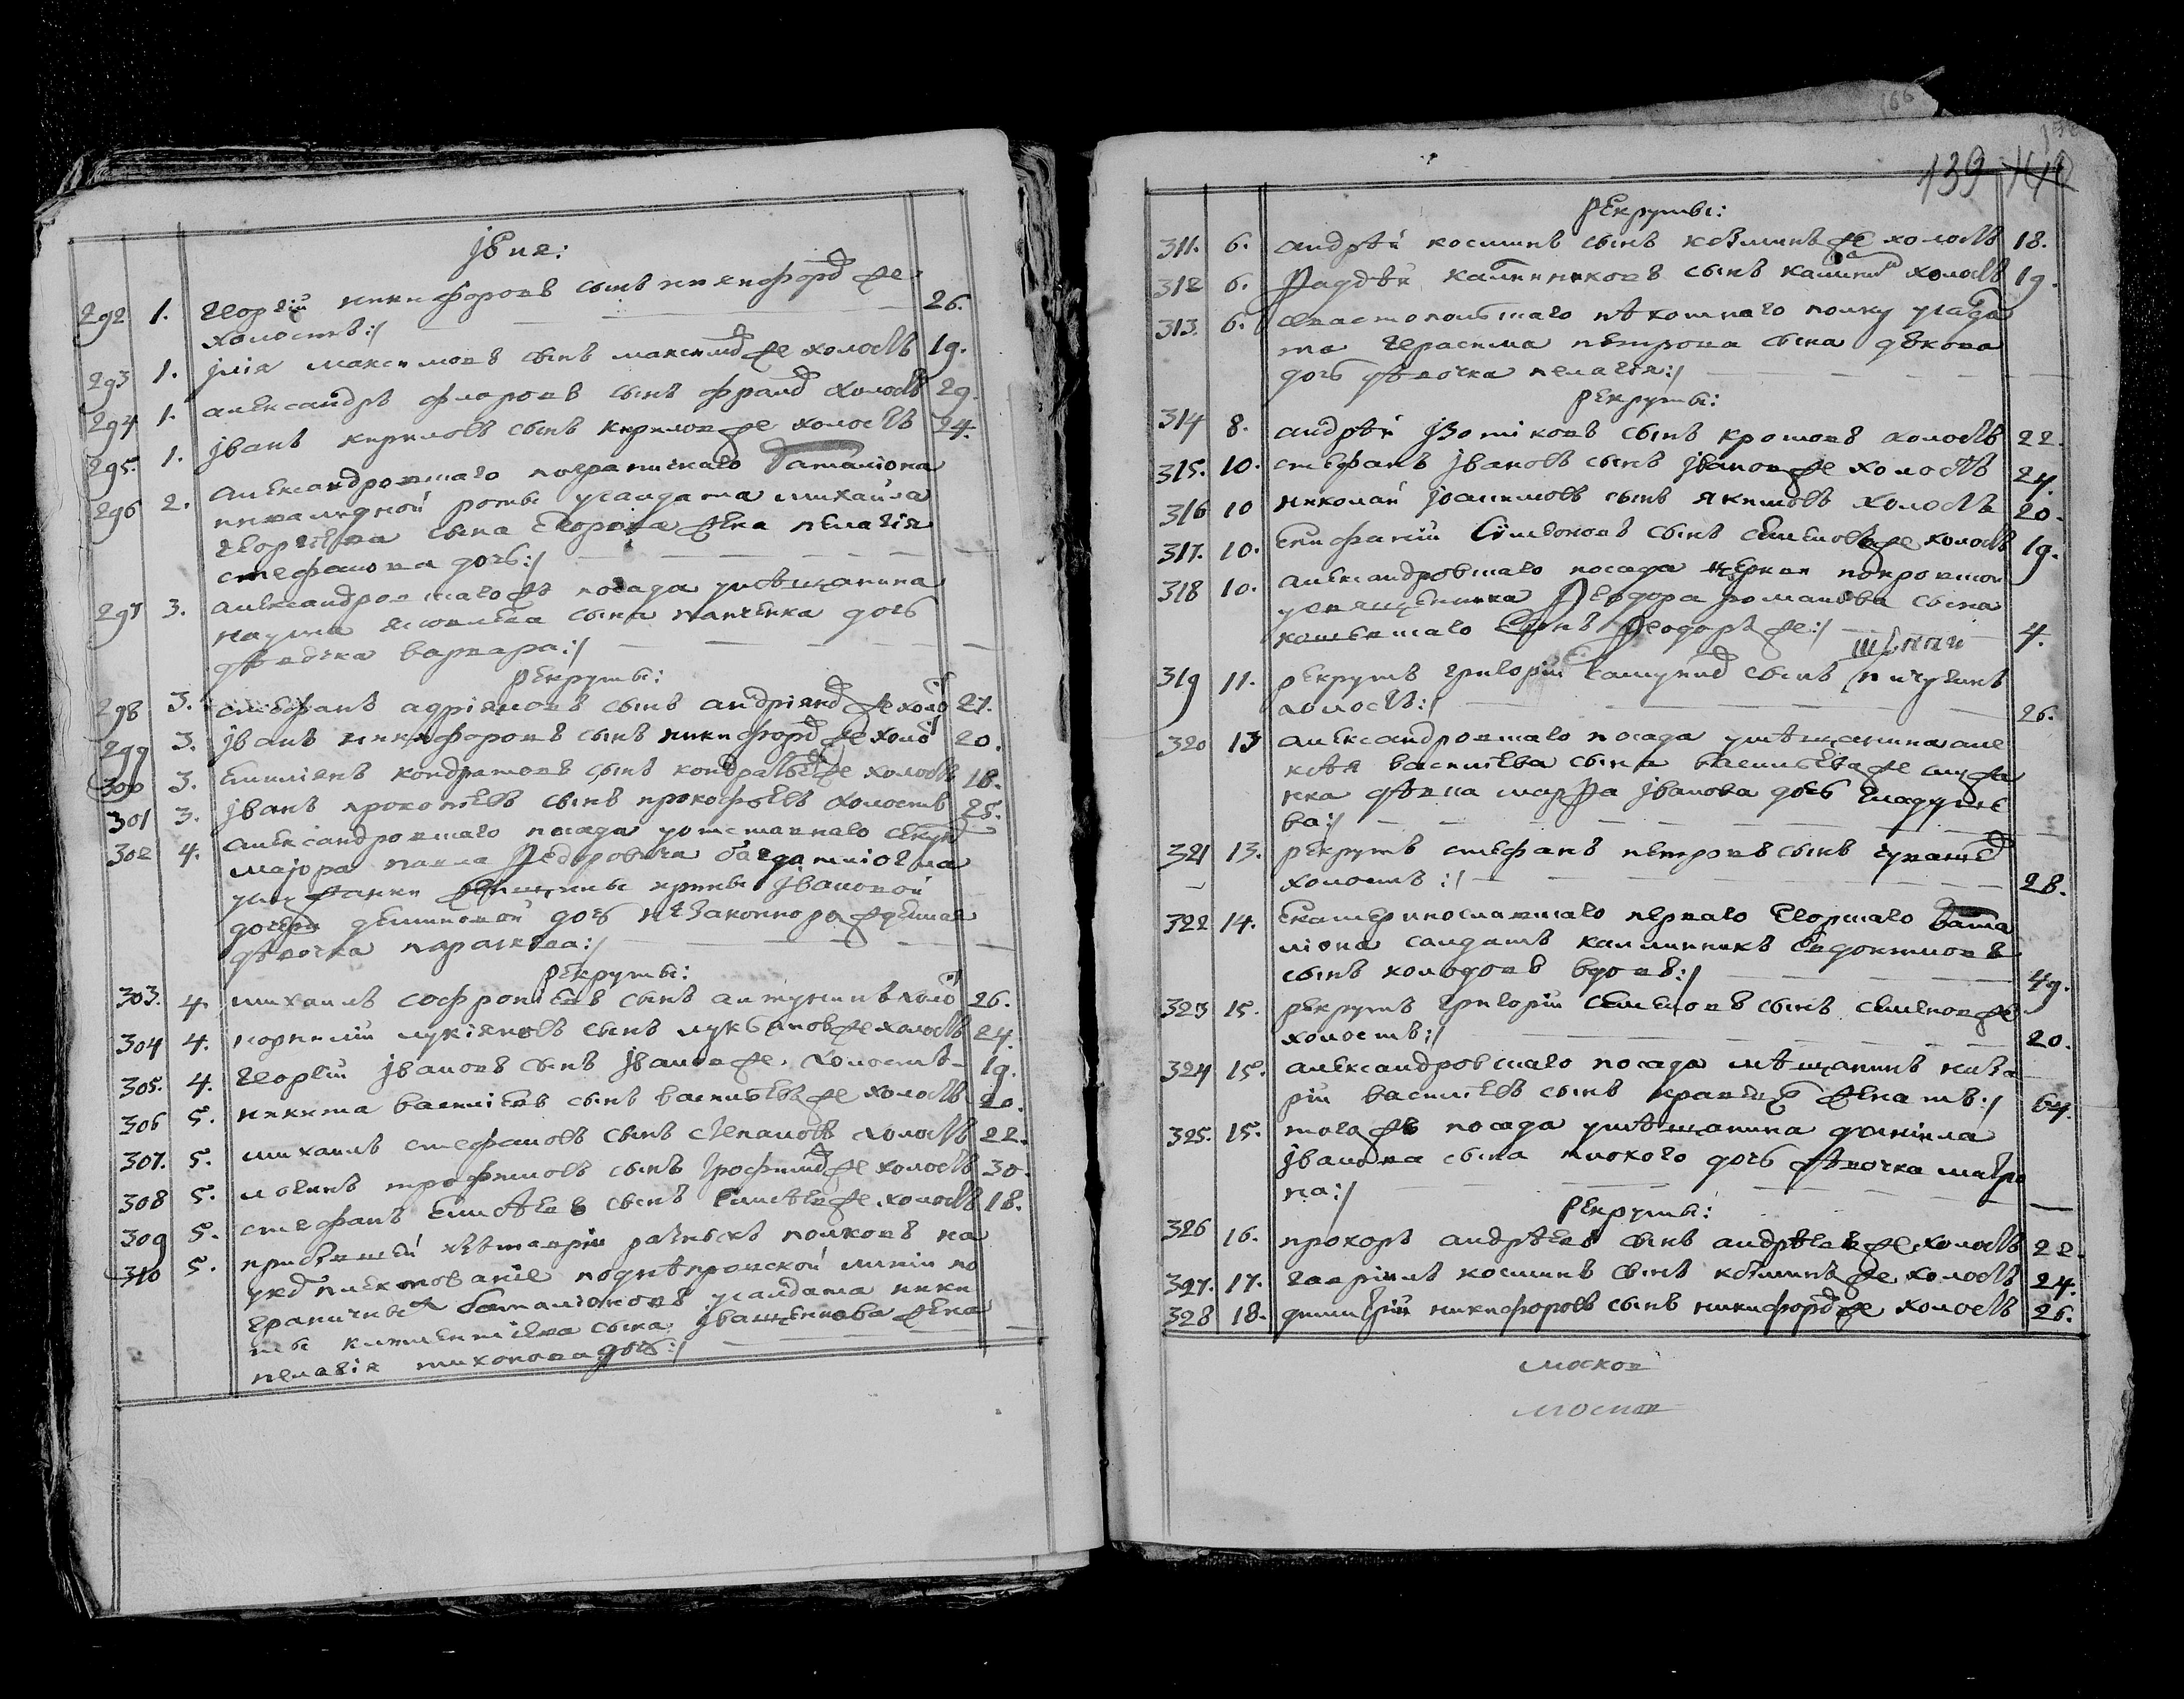 іюнѧ:
292 1. георгій никифоровъ сынъ никифоровъ же 26.
холостъ:/
293 1. илія максимовъ сынъ максимовъ же холостъ 19.
294 1. александръ флоровъ сынъ холостъ 29.
295. 1. іванъ кириловъ сынъ кириловъ же холостъ 24.
296 2. александровскаго пограничнаго баталіона
инвалидной роты усалдата михаила
георгіева сына егорова жена пелагія
стефанова дочь:/
297 3. александровскагожъ посада умѣщанина
наума яковлева сына дочь
дѣвочка варвара:/
рекруты:
298 3. стефанъ адріяновъ сынъ андріяновъ же холо 27.
299 3. іванъ никифоровъ сынъ никифоровъ же холо 20.
300 3. емиліянъ кондратовъ сынъ кондратьевъ же холостъ 18.
301 3. іванъ прокопіевъ сынъ прокофьевъ холостъ 25.
302 4. александровскаго посада уотставнаго секунд
маіора павла федоровича
услужанки ирины івановой
дочери дочь незаконнорожденная
дѣвочка параскева:/
рекруты:
303. 4. михаилъ софроніевъ сынъ холо 26.
304 4. корнилій лукіяновъ сынъ лукьяновъ же холостъ 24.
305. 4. георгій івановъ сынъ івановъ же холостъ 19.
306 5. никита василіевъ сынъ васильевъ же холостъ 20.
307. 5. михаилъ стефановъ сынъ степановъ холостъ 22.
308 5. логинъ трофимовъ сынъ трофимовъ же холостъ 30.
309 5. стефанъ сынъ же холостъ 18.
310 5. прибывшей разныхъ полковъ на
укомплектованіе поднѣпровской линіи по
граничныхъ баталіоновъ усалдата ники
ты климентіева сына іващенкова жена
пелагія тихонова дочь:/
139
166
рекруты:
311. 6. андрѣй косминъ сынъ козминъ же холостъ 18.
312 6. фадѣй калинниковъ сынъ холостъ 19.
313. 6. севастопольскаго пѣхотнаго полку усалда
та герасима петрова сына дѣкова
дочь дѣвочка пелагія:/
рекруты:
314 8. андрѣй сынъ кротовъ холостъ 22.
315. 10. стефанъ івановъ сынъ івановъ же холостъ 24.
316 10 николай іоакимовъ сынъ якимовъ холостъ 20.
317. 10. епифаній симеоновъ сынъ семеновъ же холостъ 19.
318 10. александровскаго посада церкви покровской
усвященника феодора романова сына
кошевскаго сынъ феодоръ же:/ 4.
319 11. рекрутъ григорій сынъ пичугинъ
холостъ:/ 26.
320 13 александровскаго посада умѣщанина але
ксѣя василіева сына васильева же служа
нка дѣвка марфа іванова дочь гладуше
ва:/
321 13. рекрутъ стефанъ петровъ сынъ
холостъ:/ 28.
322 14. екатеринославскаго перваго егорскаго бата
ліона салдатъ каллинникъ евдокимовъ
сынъ холодовъ вдовъ:/ 49.
323 15. рекрутъ григорій семеновъ сынъ семеновъ же
холостъ:/ 20.
324 15. александровскаго посада мѣщанинъ наза
рій василіевъ сынъ женатъ:/ 64.
325. 15. тогожъ посада умѣщанина даніила
іванова сына дочь дѣвочка матро
на:/
рекруты:
326 16. прохоръ андрѣевъ сынъ андрѣевъ же холостъ 22.
327. 17. гавріилъ косминъ сынъ козминъ же холостъ 24.
328 18. димитрій никифоровъ сынъ никифоровъ же холостъ 26.